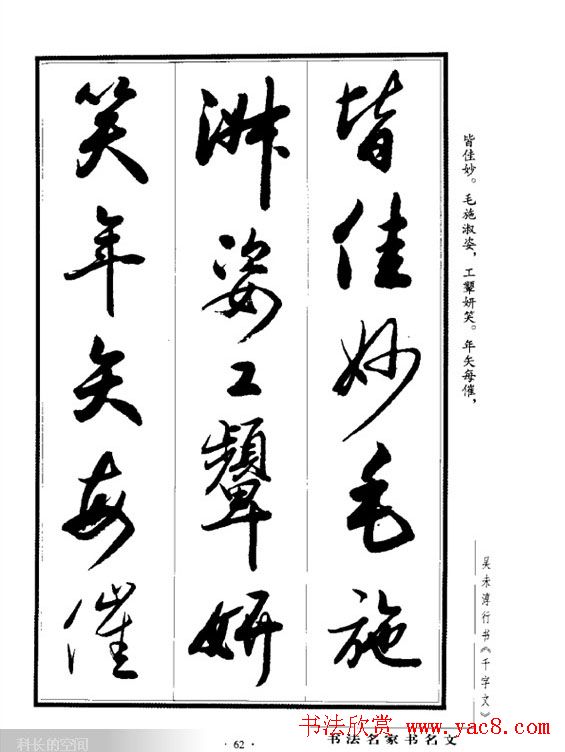 皆佳妙毛施
淑姿工颦妍
笑年矢每催
皆佳妙。毛施淑姿，工颦妍笑。年矢每催，
吴未淳行书《千字文》
·62·
书法名家书名文
书法欣赏 www.yac8.com
科长的空间